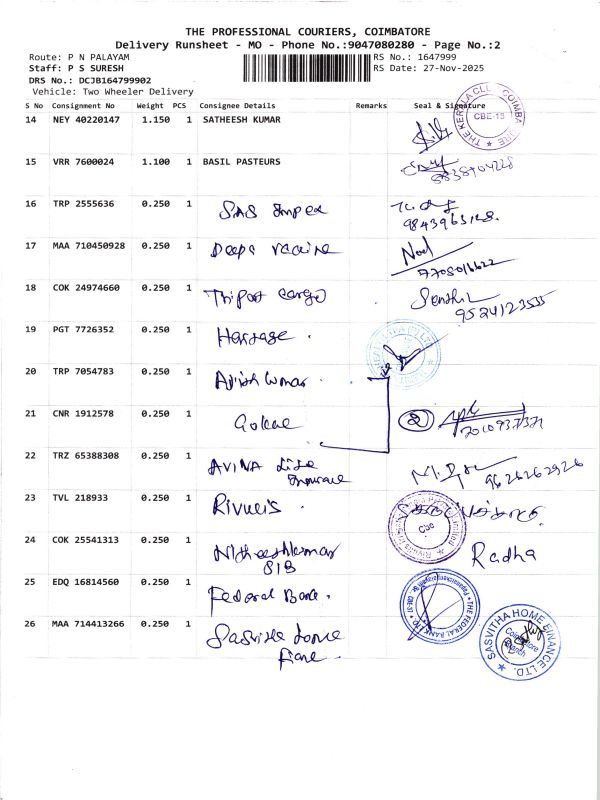 THE PROFESSIONAL COURIERS, COIMBATORE
Delivery Runsheet - MO - Phone No.:9047080280 - Page No.:2
Route: P N PALAYAM
RS No.: 1647999
Staff: P S SURESH
RS Date: 27-Nov-2025
DRS No.: DCJB164799902
Vehicle: Two Wheeler Delivery
S No Consignment No Weight PCS Consignee Details Remarks Seal & Signature
14 NEY 40220147 1.150 1 SATHEESH KUMAR
CBE-18
15 VRR 7600024 1.100 1 BASIL PASTEURS
16 TRP 2555636 0.250 1 SAS Impex
17 MAA 710450928 0.250 1 Deepa vaccine
Noel
7708016622
18 COK 24974660 0.250 1 Triport cargo
Senthil
9524123535
19 PGT 7726352 0.250 1
20 TRP 7054783 0.250 1 Ajith kumar
21 CNR 1912578 0.250 1
2
22 TRZ 65388308 0.250 1 AVIVA Life
Insurance
9626262926
23 TVL 218933 0.250 1 Rivulis
CBE
24 COK 25541313 0.250 1 Nitheeshkumar
SIB
Radha
25 EDQ 16814560 0.250 1 Federal Bank.
THE FEDERAL BANK
26 MAA 714413266 0.250 1 Sasvitha home
Finance
SASVITHA HOME FINANCE LTD.
Coimbatore
Branch